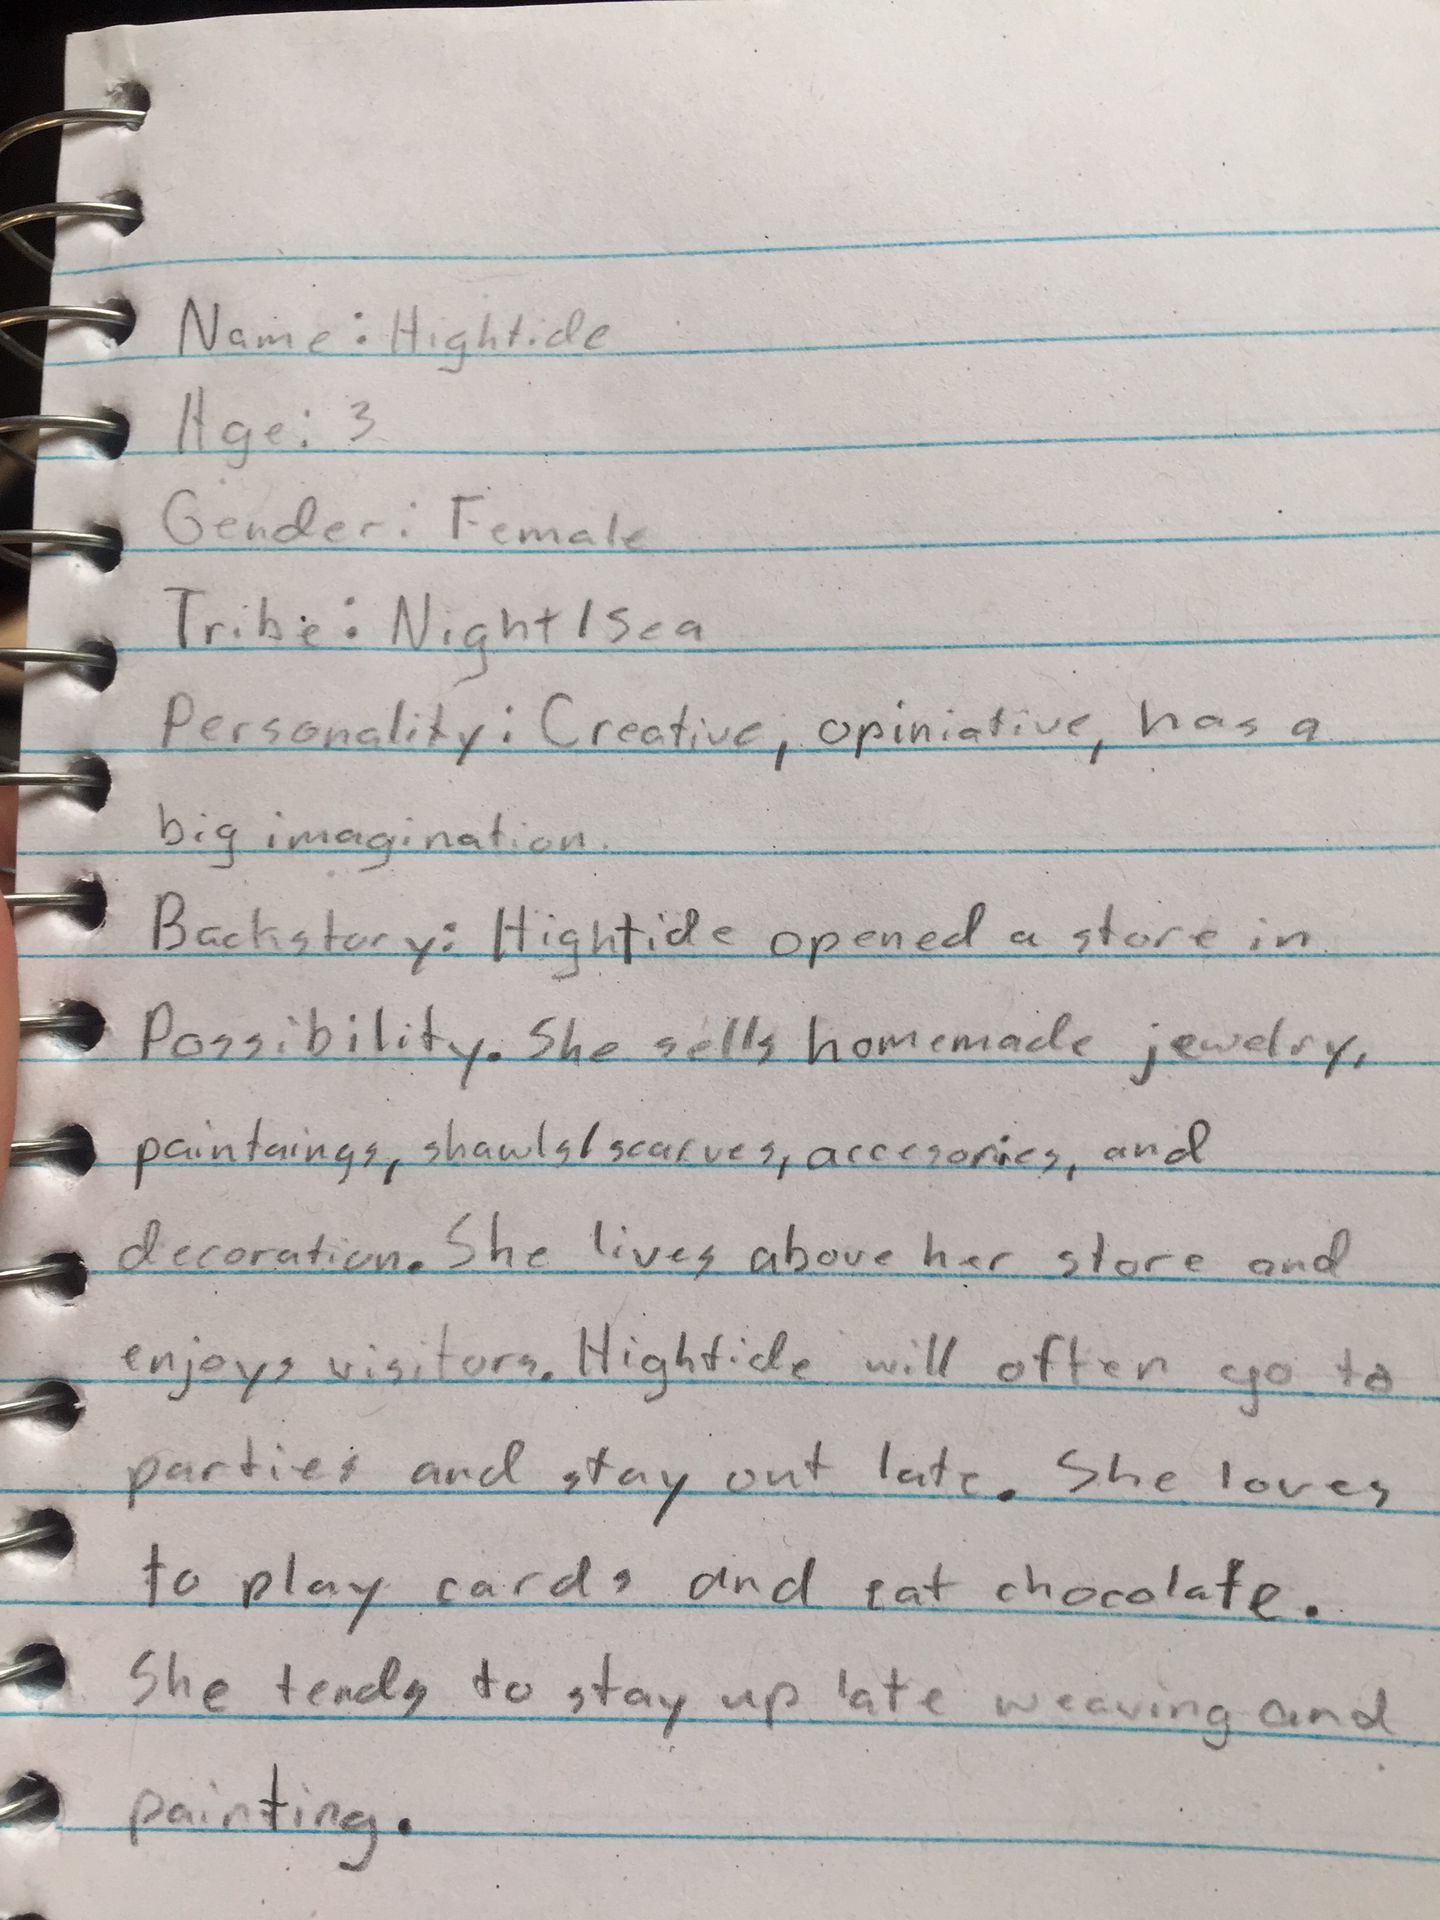 Name: Hightide
Age: 3
Gender: Female
Tribe: Night/Sea
Personality: Creative, opiniative, has a
big imagination.
Backstory: Hightide opened a store in
Possibility. She sells homemade jewelry,
paintaings, shawls/scarves, accesories, and
decoration. She lives above her store and
enjoys visitors. Hightide will often go to
parties and stay out late. She loves
to play cards and eat chocolate.
She tends to stay up late weaving and
painting.